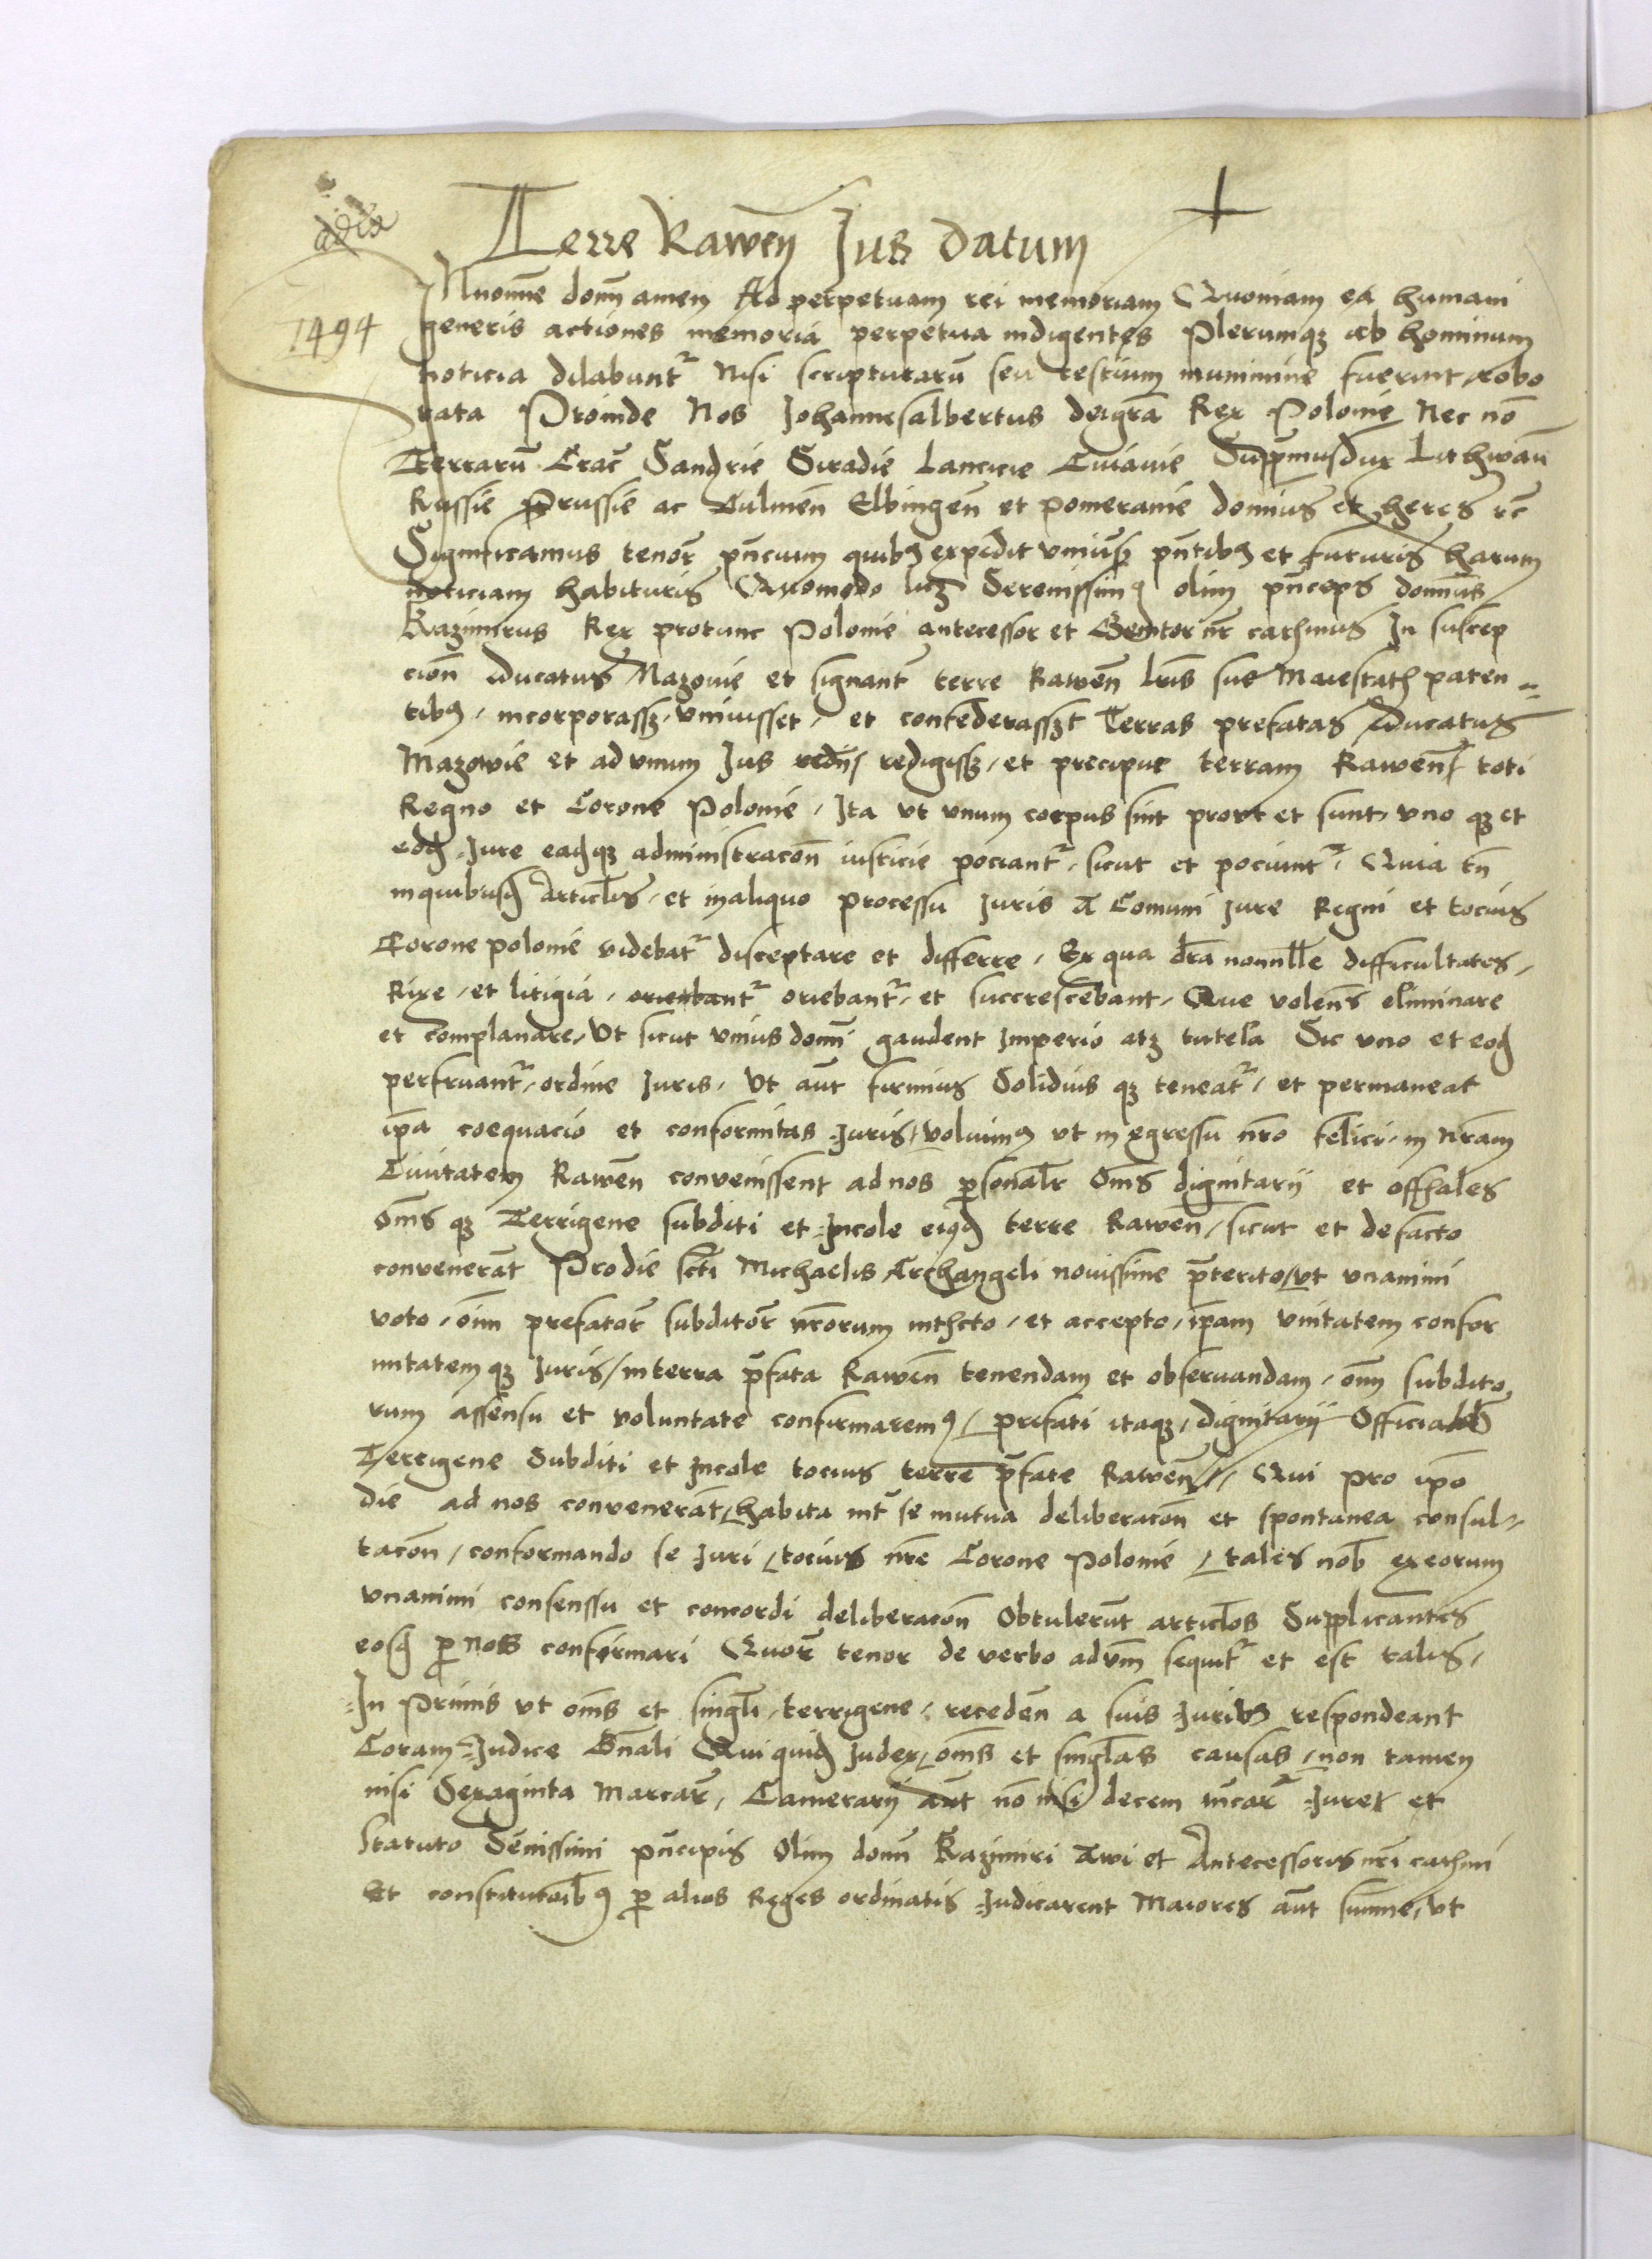 Terre Rawen̄ Jus datum
Jn noīne domī amen Ad perpetuam rei memoriam Quoniam ea humani
1494
generis actiones memoria perpetua indigentes Plerumqꝫ ab hominum
noticia dilabunt̄ Nisi scripturarū seu testium munimine fuerint robo
rata Proinde Nos Johannesalbertus deigrā Rex Polonie Nec nō
Terrarū Crac̄ Sandrie Siradie Lancicie Cuiauie Sup̄musdux Lithwan̄
Russie Prussie ac Culmen̄ Elbingen̄ et pomeranie dominus et heres rc̄
Significamus tenor̄ pn̄cium quibꝫ expedit vniūs̄ pn̄tibꝫ et futuris harum
noticiam habituris Quomodo licꝫ Serenissimꝰ olim pn̄ceps domn̄us
Kazimirus Rex protunc Polonie antecessor et Genitor nr̄ carissimus Jn suscep
cion̄ Ducatus Mazouie et signant̄ terre Rawen̄ lr̄is sue Maiestatis paten
tibꝰ, incorporassꝫ, vniuisset, et confederassꝫt Terras prefatas Ducatus
Mazowie et ad vnum Jus redigissꝫ, et precipue terram Rawen̄ toti
Regno et Corone Polonie, Jta vt vnum corpus sint prout et sunt, vno qꝫ et
eodē Jure eadēqꝫ administracon̄ iusticie pociant̄, sicut et pociunt̄, Quia tn̄
inquibusd̄ Articl̄is, et inaliquo processu Juris A Comuni Jure Regni et tocius
Corone polonie videbat̄ disceptare et differre, Ex qua dr̄a nonnll̄e difficultates,
Rixe, et litigia, orienbant̄ oriebant̄, et succrescebant, Que volen̄s eliminare
et complanare, Vt sicut vnius domī gaudent Jmperio atqꝫ tutela Sic vno et eod̄
perfruant̄, ordine Juris, Vt aūt firmius Solidius qꝫ teneat̄, et permaneat
ip̄a coequacio et conformitas Juris, voluimꝰ vt in egressu nr̄o felici, in nr̄am
Ciuitatem Rawen̄ convenissent ad nos p̄sonalr̄ Om̄s dignitarij et offi̅ales
Om̄s qꝫ Terrigene subditi et Jncole eiusd̄ terre Rawen̄, sicut et defacto
convenerāt Pro die sc̄ti Michaelis Archangeli nouissime p̄terito, vt vnanimi
voto, om̄i prefator̄ subditor̄ nr̄orum, et accepto, ip̄am vnitatem confor
mitatem qꝫ Juris, in terra p̄fata Rawen̄ tenendam et obseruandam, om̄i subdito,
rum assensu et voluntate confirmaremꝰ, prefati itaqꝫ, dignitarij Officiales
Terrigene Subditi et Jncole tocius terre p̄fate Rawen̄, Qui pro ip̄o
die ad nos convenerāt, habita int̄ se mutua deliberacon̄ et spontanea consul
tacon̄, conformando se Juri, tocius nr̄e Corone Polonie, tales nob̄ exeorum
vnanimi consenssu et concordi deliberacon̄ Obtulerūt articl̄os Supplicantes
eosd̄ p̄ nos confirmari Quor̄ tenor de verbo adv̄m sequit̄ et est talis,
Jn Primis vt om̄s et singl̄i, terrigene, receden̄ a suis Juribꝰ respondeant
Coram Judice Gn̄ali Qui quid̄ Judex, om̄s et singl̄as causas, non tamen
nisi Sexaginta Marcar̄, Camerarij aūt nō nisi decem mr̄car̄ Juret et
Statuto Sēnissimi pn̄cipis Olim domī Kazimiri Awi et Antecessoris nr̄i carissimi
Et constitutoibꝰ p̄ alios Reges ordinatis Judicarent Maiores aūt summe, vt